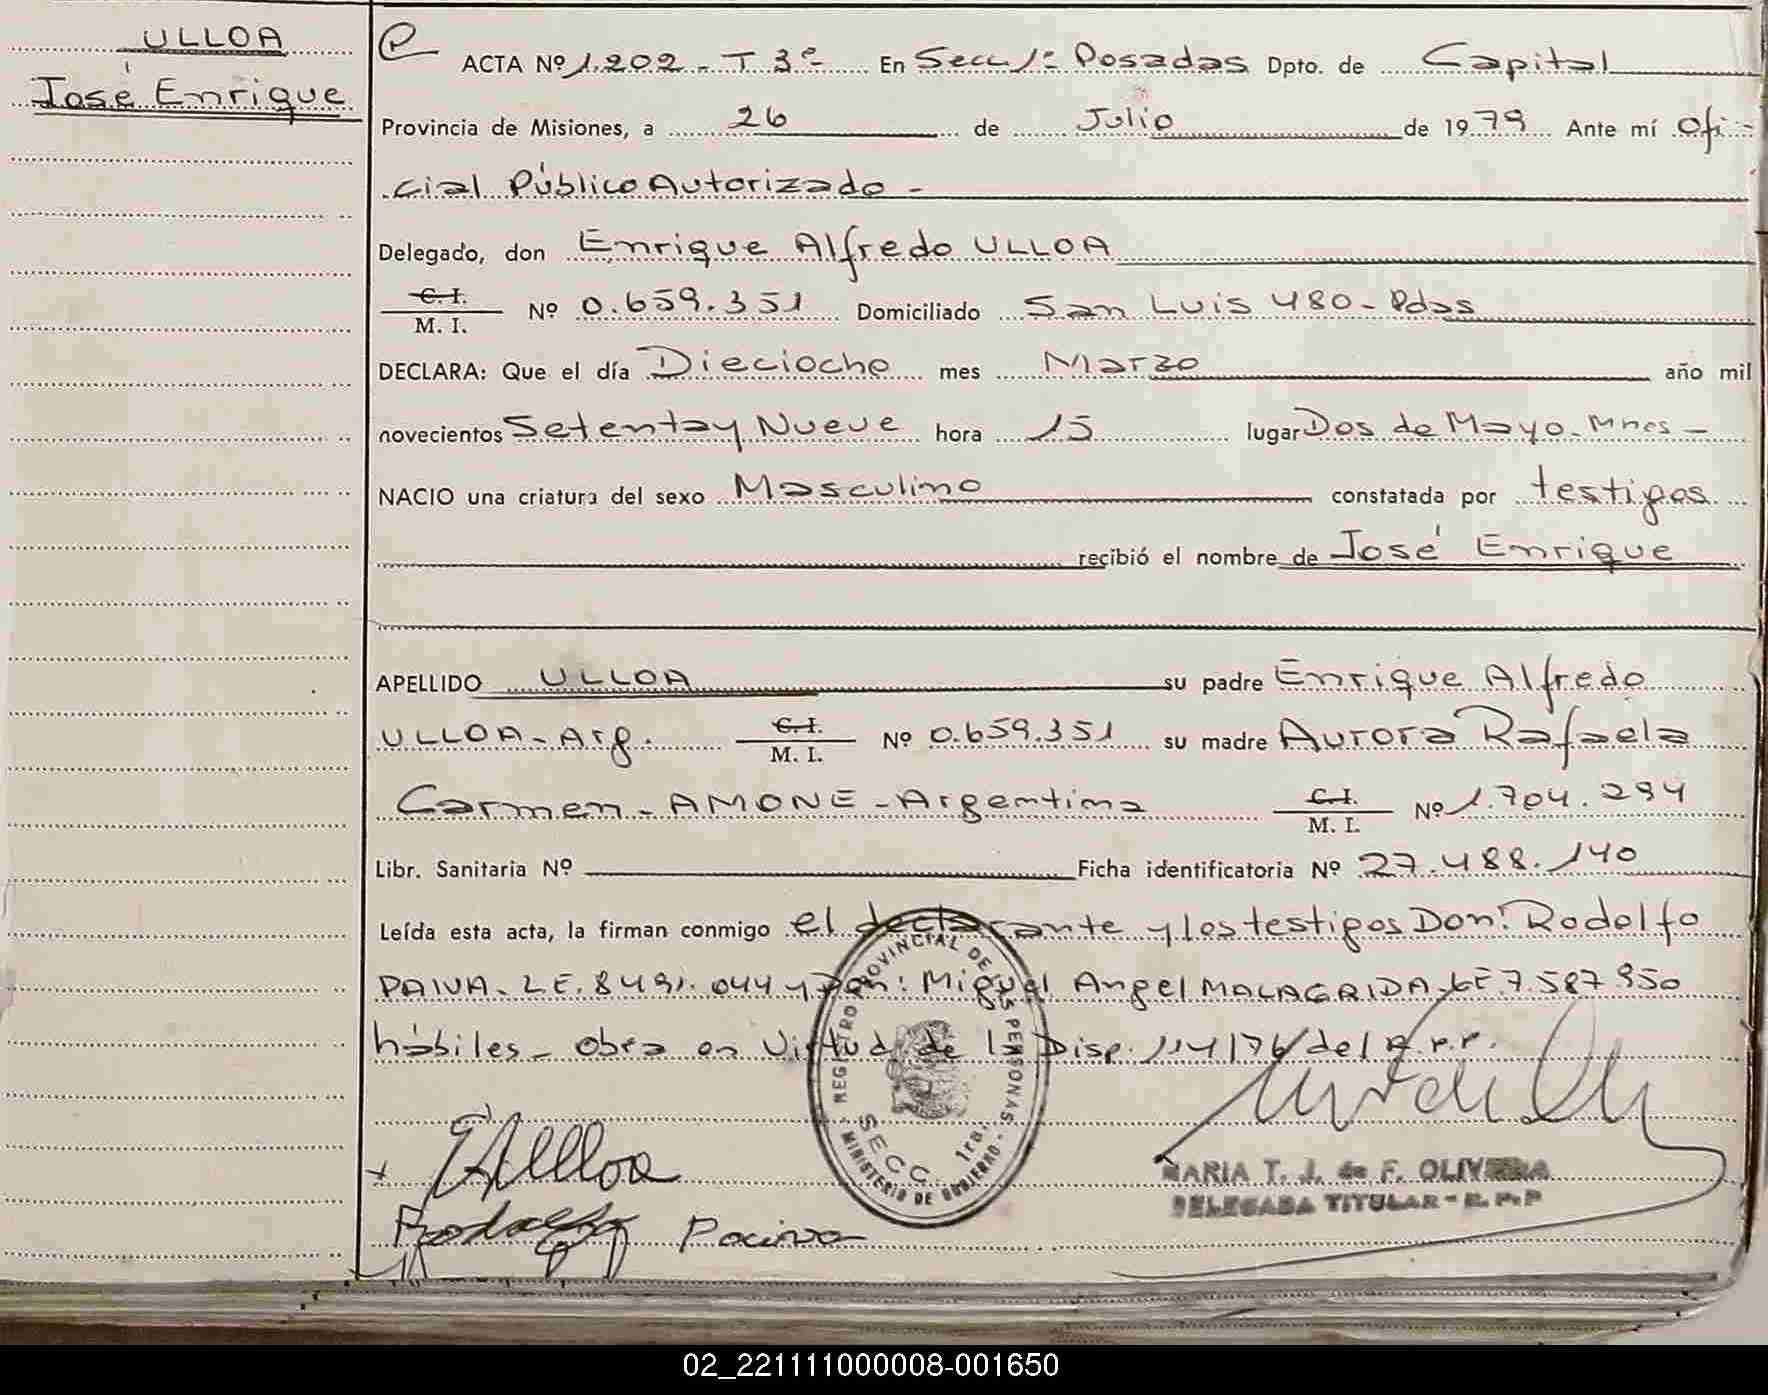 ULLOA
José Enrique
ACTA Nº 1.202 - T 3º - En Secc. 1ª Posadas Dpto. de Capital
Provincia de Misiones, a 26 de Julio de 1979 Ante mí Ofi-
cial Público Autorizado -
Delegado, don Enrique Alfredo ULLOA
C. I.
M. I. Nº 0.659.351 Domiciliado San Luis 480 - Pdas
DECLARA: Que el día Dieciocho mes Marzo año mil
novecientos Setenta y Nueve hora 15 lugar Dos de Mayo - Mnes -
NACIO una criatura del sexo Masculino constatada por testigos
recibió el nombre de José Enrique
APELLIDO ULLOA su padre Enrique Alfredo
ULLOA - Arg. C. I. M. I. Nº 0.659.351 su madre Aurora Rafaela
Carmen - AMONE - Argentina C. I. M. I. Nº 1.704.294
Libr. Sanitaria Nº Ficha identificatoria Nº 27.488.140
Leída esta acta, la firman conmigo el declarante y los testigos Don: Rodolfo
PAIVA - L E. 8491.044 y Don: Miguel Angel MALAGRIDA - LE 7.587.950
hábiles - obra en Virtud de la Disp. 114/76 del R.P.P.
REGISTRO PROVINCIAL DE LAS PERSONAS
SECC. 1ra.
MINISTERIO DE GOBIERNO
EAUlloa
Rodolfo Paiva
MARIA T. J. de F. OLIVERA
DELEGADA TITULAR - R. P. P
02_221111000008-001650